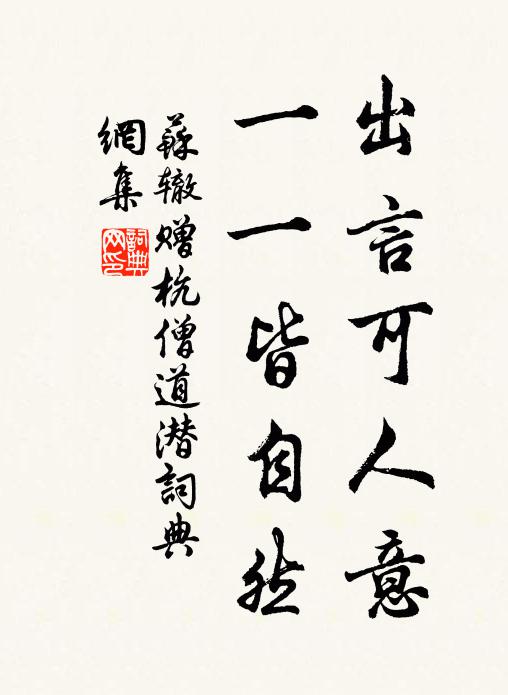 出言可人意
一一皆自然
蘇轍贈杭僧道潜詞典
網集
詞典
网印